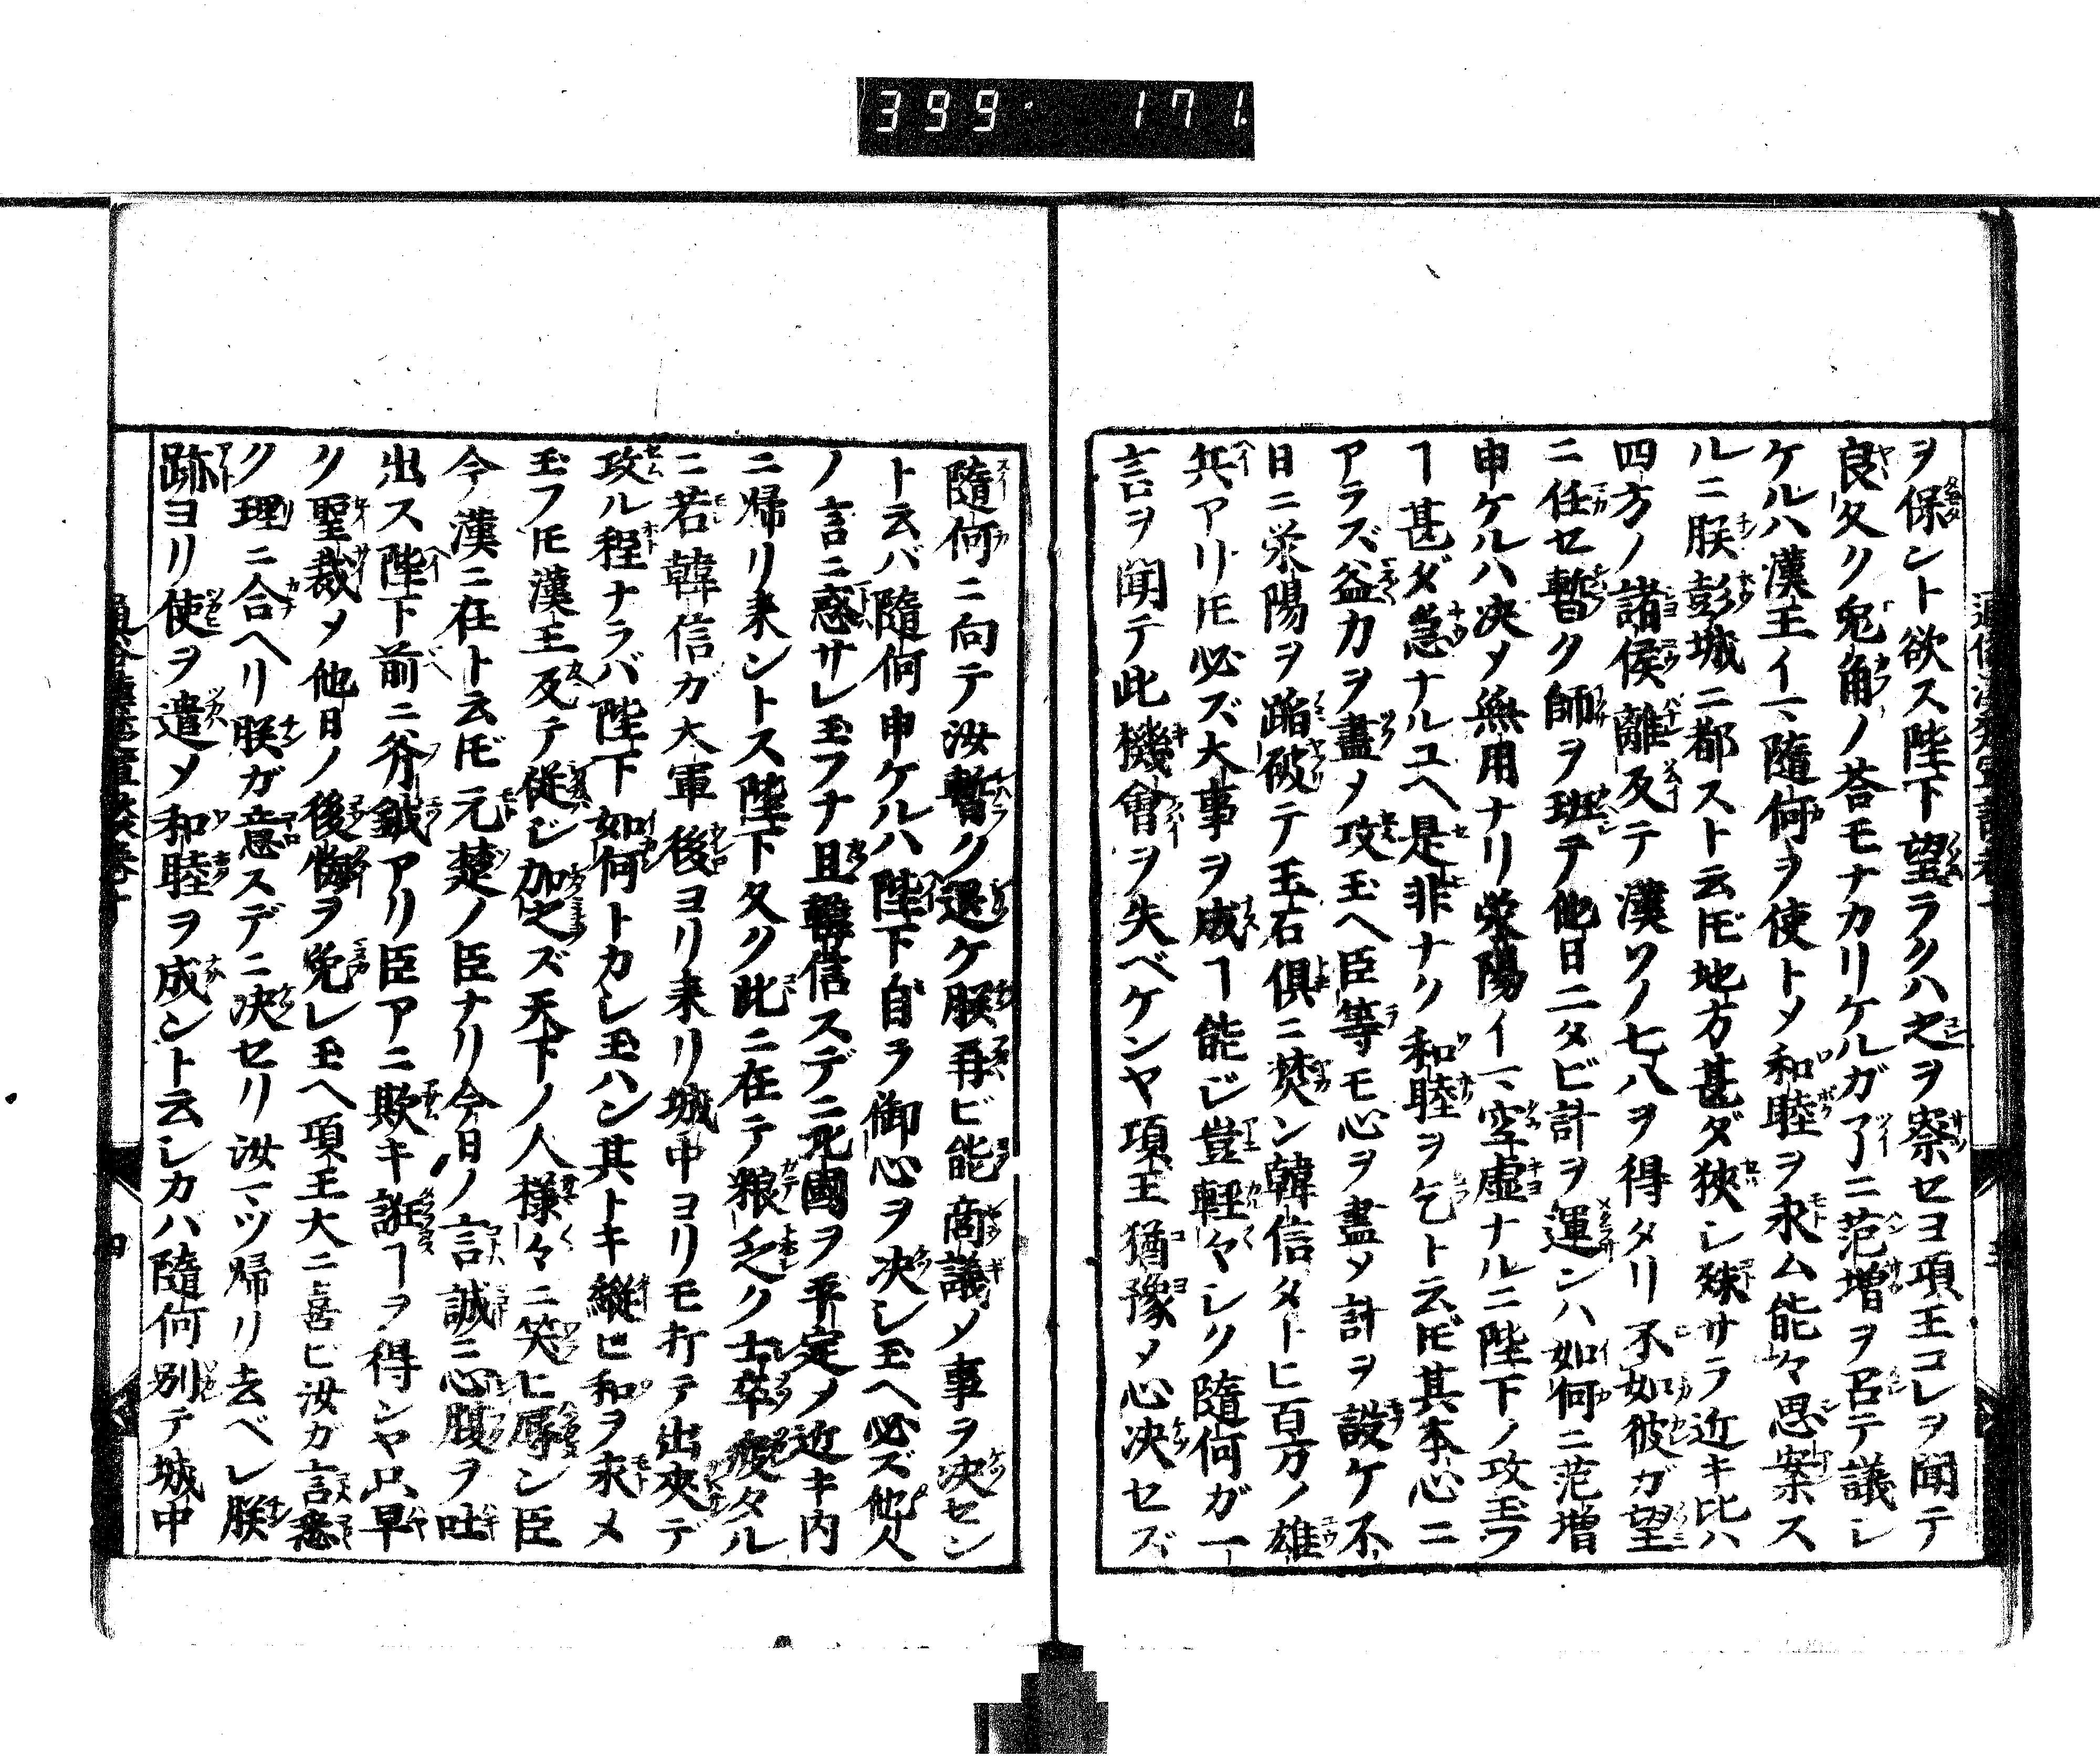 399 171
ヲ保ント欲ス陛下望ラクハ之ヲ察セヨ項王コレヲ聞テ
良久ク兎角ノ荅モナカリケルガ了ニ范増ヲ召テ議シ
ケルハ漢王イマ隨何ヲ使トメ和睦ヲ求ム能々思案ス
ルニ朕彭城ニ都スト云𪜈地方甚ダ狹シ殊サラ近キ比ハ
四方ノ諸侯離反テ漢ソノ七八ヲ得タリ不如彼ガ望
ニ任セ暫ク師ヲ班テ他日二タビ計ヲ運ンハ如何ニ范増
申ケルハ决メ無用ナリ栄陽イマ空虚ナルニ陛下ノ攻玉フ
ヿ甚ダ急ナルユヘ是非ナク和睦ヲ乞ト云𪜈其本心ニ
アラズ益力ヲ盡メ攻玉ヘ臣等モ心ヲ盡メ計ヲ設ケ不
日ニ栄陽ヲ踏破テ玉石俱ニ焚ン韓信タトヒ百万ノ雄
兵アリ𪜈必ズ大事ヲ成ヿ能ジ豈軽々シク隨何ガ一
言ヲ聞テ此機會ヲ失ベケンヤ項王猶豫メ心决セズ
隨何ニ向テ汝暫ク退ケ朕再ビ能商議メ事ヲ决セン
ト云バ隨何申ケルハ陛下自ラ御心ヲ决シ玉ヘ必ズ他人
ノ言ニ惑サレ玉フナ且韓信スデニ死國ヲ平定メ近キ内
ニ帰リ来ントス陛下久ク此ニ在テ粮乏ク士卒疲タル
ニ若韓信ガ大軍後ヨリ来リ城中ヨリモ打テ出夾デ
攻ル程ナラバ陛下如何トカシ玉ハン其トキ縦ヒ和ヲ求メ
玉フ𪜈漢王反テ従ジ加之ズ天下ノ人様々ニ笑ヒ辱ン臣
今漢ニ在ト云𪜈元楚ノ臣ナリ今日ノ言誠ニ心腹ヲ吐
出ス陛下前ニ斧鉞アリ臣アニ欺キ誑ヿヲ得ンヤ只早
ク聖裁メ他日ノ後悔ヲ免レ玉ヘ項王大ニ喜ビ汝カ言悉
ク理ニ合ヘリ朕ガ意スデニ决セリ汝マヅ帰リ去ベシ朕
跡ヨリ使ヲ遣メ和睦ヲ成ント云シカハ隨何別テ城中
四